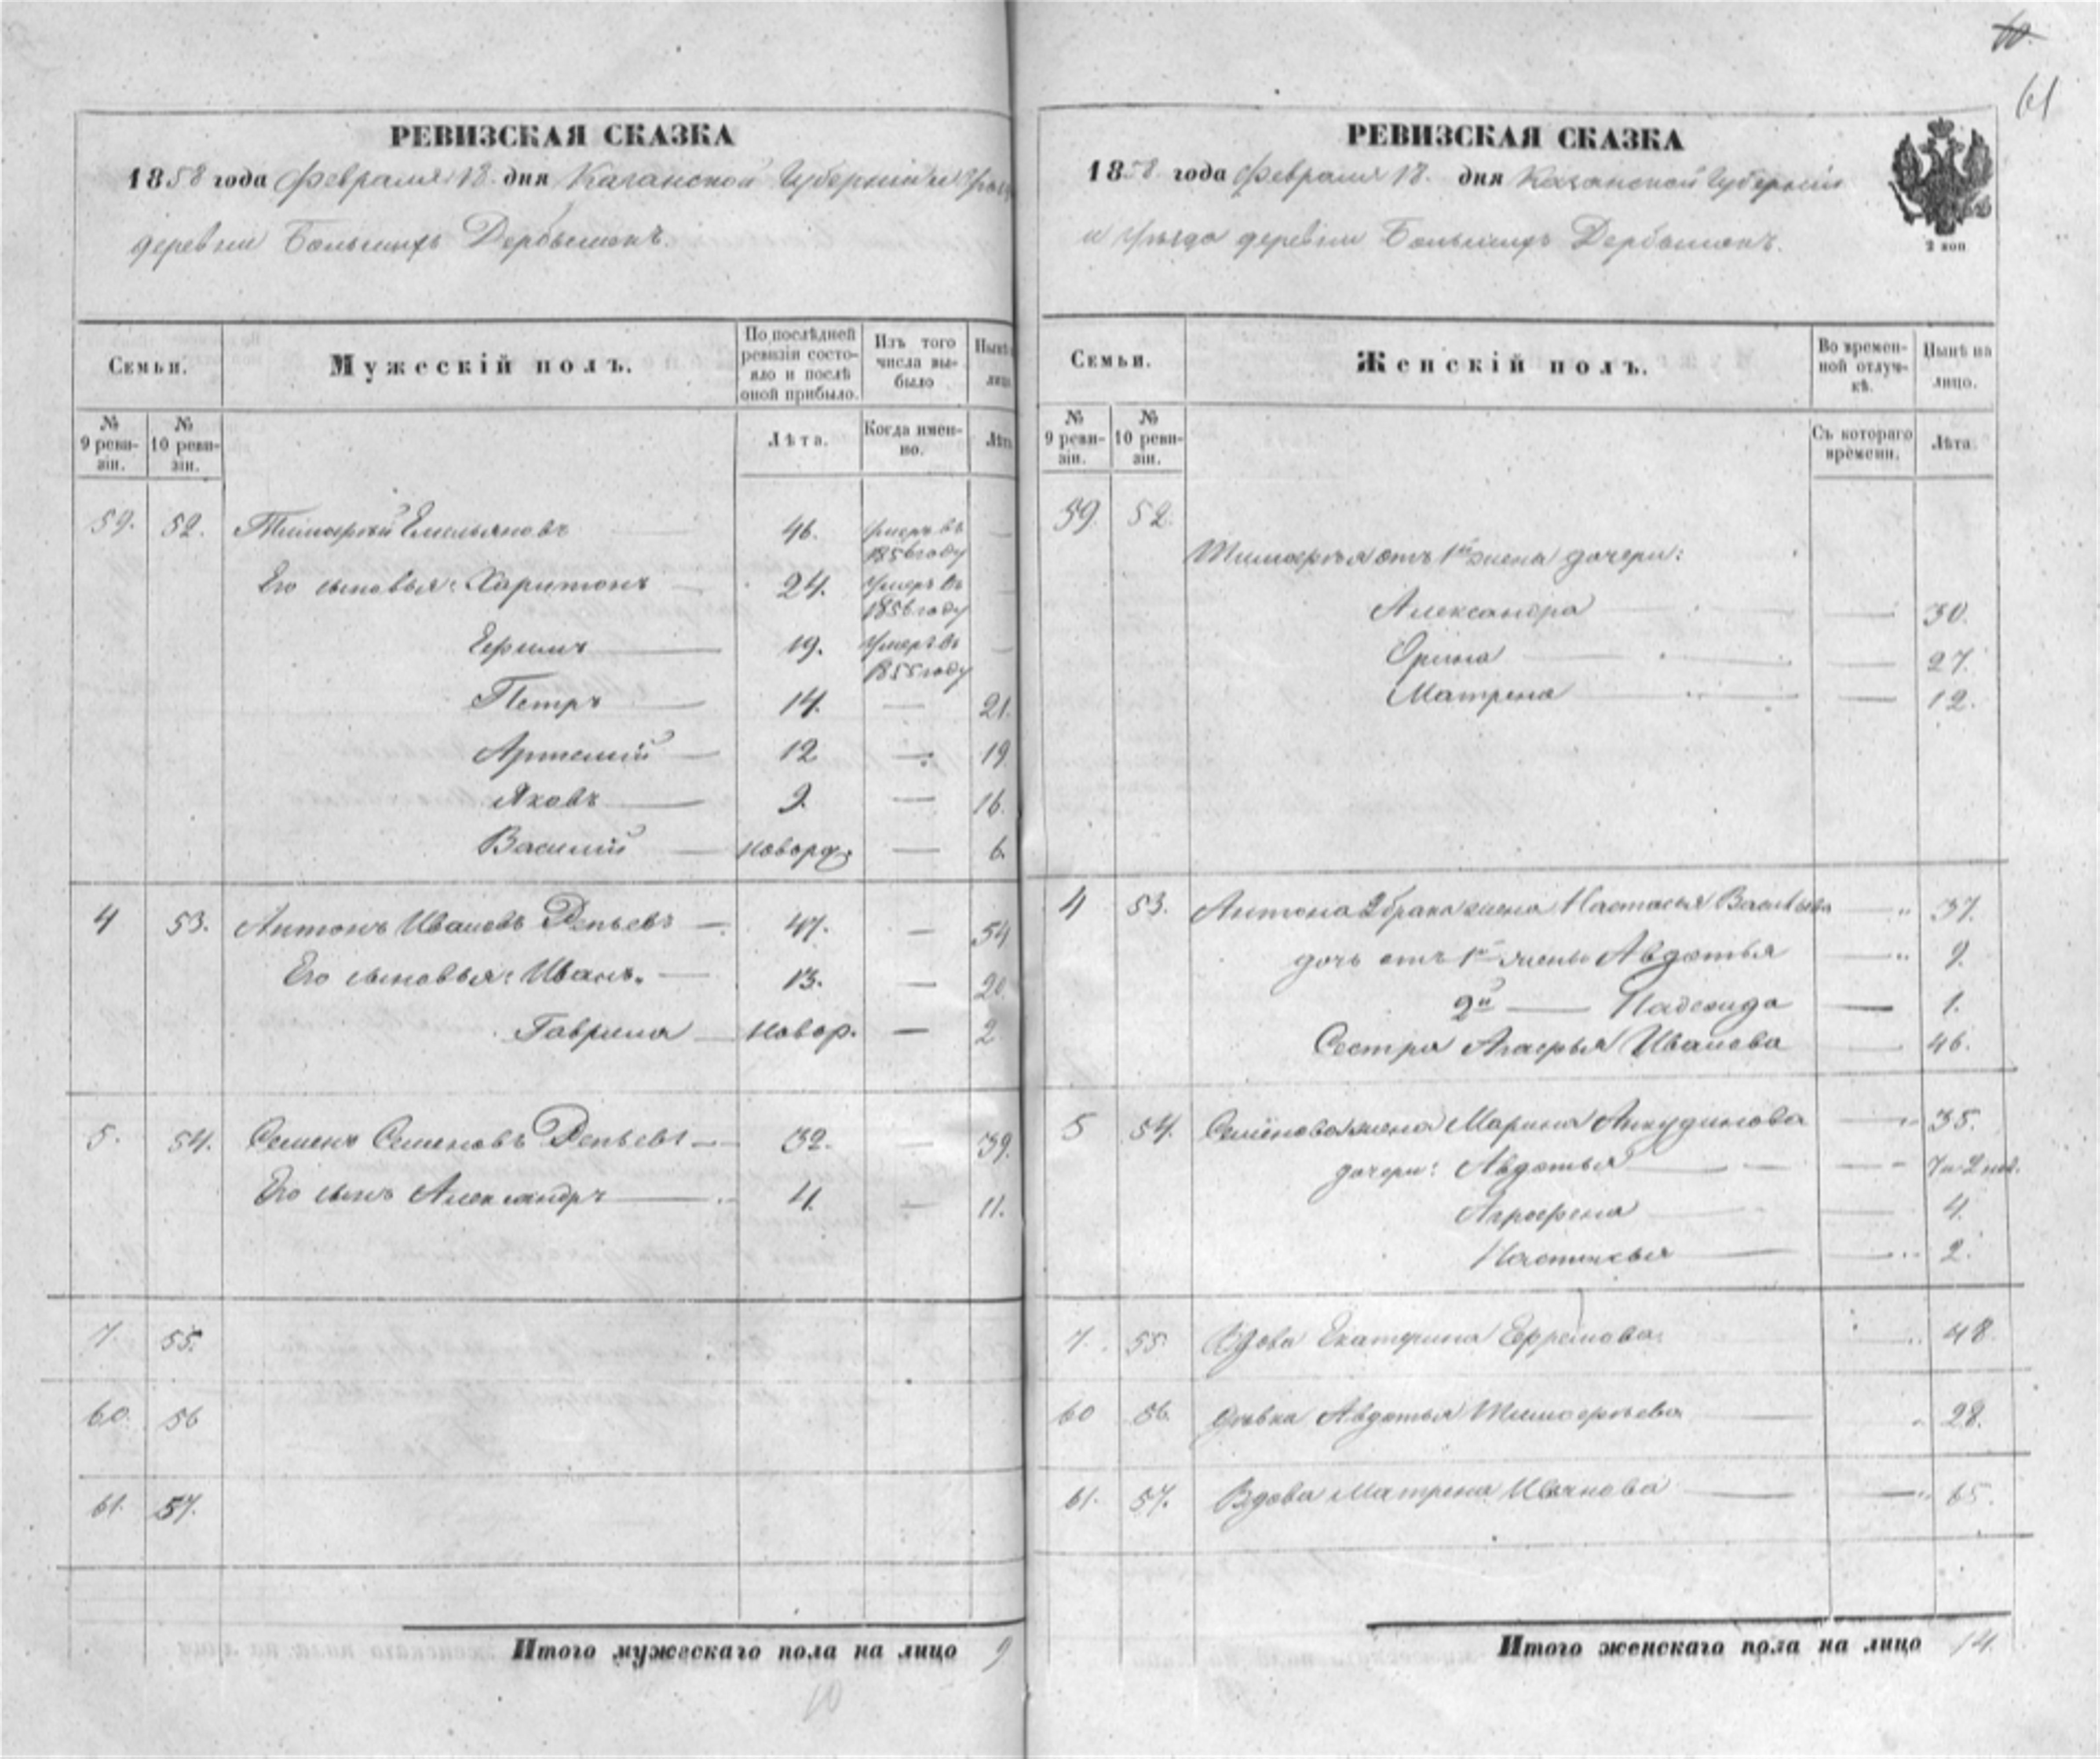 61
РЕВИЗСКАЯ СКАЗКА
1858 года Февраля 18. дня Казанской Губерніи и Уѣзда
деревни Большихъ Дербышекъ.
Семьи.
Мужескій полъ.
По послѣдней ревизіи состояло и послѣ оной прибыло.
Изъ того числа выбыло
Нынѣ лицо
№ 9 ревизіи.
№ 10 ревизіи.
Лѣта.
Когда именно.
Лѣта
59. 52. Тимофей Емельяновъ 46. умеръ въ 1856 году —
Его сыновья: Харитонъ — 24. Умеръ въ 1856 году —
Ефимъ — 19. Умеръ въ 1855 году —
Петръ — 14. — 21.
Артемій — 12 — 19
Яковъ — 9. — 16.
Василій — новорж. — 6.
4 53. Антонъ Ивановъ Репьевъ — 47. — 54
Его сыновья: Иванъ. — 13. — 20
Гаврила — новор. — 2
5. 54. Семенъ Семеновъ Репьевъ — 32. — 39.
Его сынъ Александръ — 4. — 11.
7. 55.
60. 56
61. 57.
Итого мужескаго пола на лицо 9
10
РЕВИЗСКАЯ СКАЗКА
1858 года Февраля 18. дня Казанской Губерніи
и Уѣзда деревни Большихъ Дербышекъ.
2 коп
Семьи.
Женскій полъ.
Во временной отлучкѣ.
Нынѣ на лицо.
№ 9 ревизіи.
№ 10 ревизіи.
Съ котораго времени.
Лѣта.
59. 52.
Тимофея отъ 1й жена дочери:
Александра — — 30.
Орина — — 27.
Матрена — — 12.
4 53. Антона 2 брака жена Настасья Васильева — 37.
дочь отъ 1й жены Авдотья — 9.
2й — Надежда — 1.
Сестра Агафья Иванова — 46.
5 54. Семенова жена Марина Анкудинова — 35.
дочери: Авдотья — — 7 и 2 нед.
Аграфена — — 4.
Настасья — — 2.
7. 55. Вдова Екатерина Ефремова. — 48.
60 56. дѣвка Авдотья Тимофеева — 28.
61. 57. Вдова Матрена Иванова — — 65.
Итого женскаго пола на лицо 14.